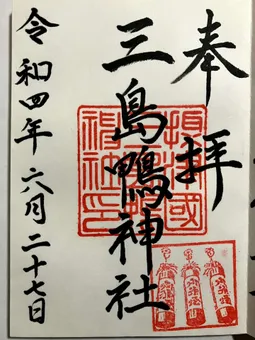 奉拝
三島鴨神社
令和四年六月二十七日